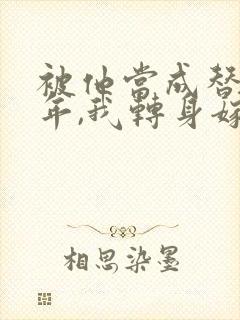 被他当成替
年,我转身嫁
相思染墨